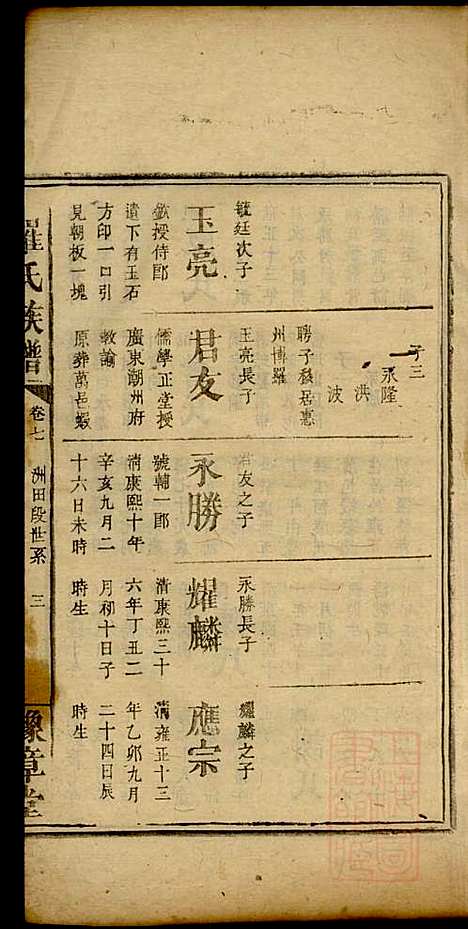 子三
永隆
洪
波
聘子發居惠
州博羅
毓廷次子
玉亮
欽授侍郎
遺下有玉石
方印一口引
見朝板一塊
玉亮長子
君友
儒學正堂授
廣東潮州府
教諭
原葬萬邑蝦
君友之子
永勝
號輔一郎
清康熙十年
辛亥九月二
十六日未時
永勝長子
耀麟
清康熙三十
六年丁丑二
月初十日子
時生
耀麟之子
應宗
清雍正十三
年乙卯九月
二十四日辰
時生
羅氏族譜
卷七
洲田段世系
三
豫章堂